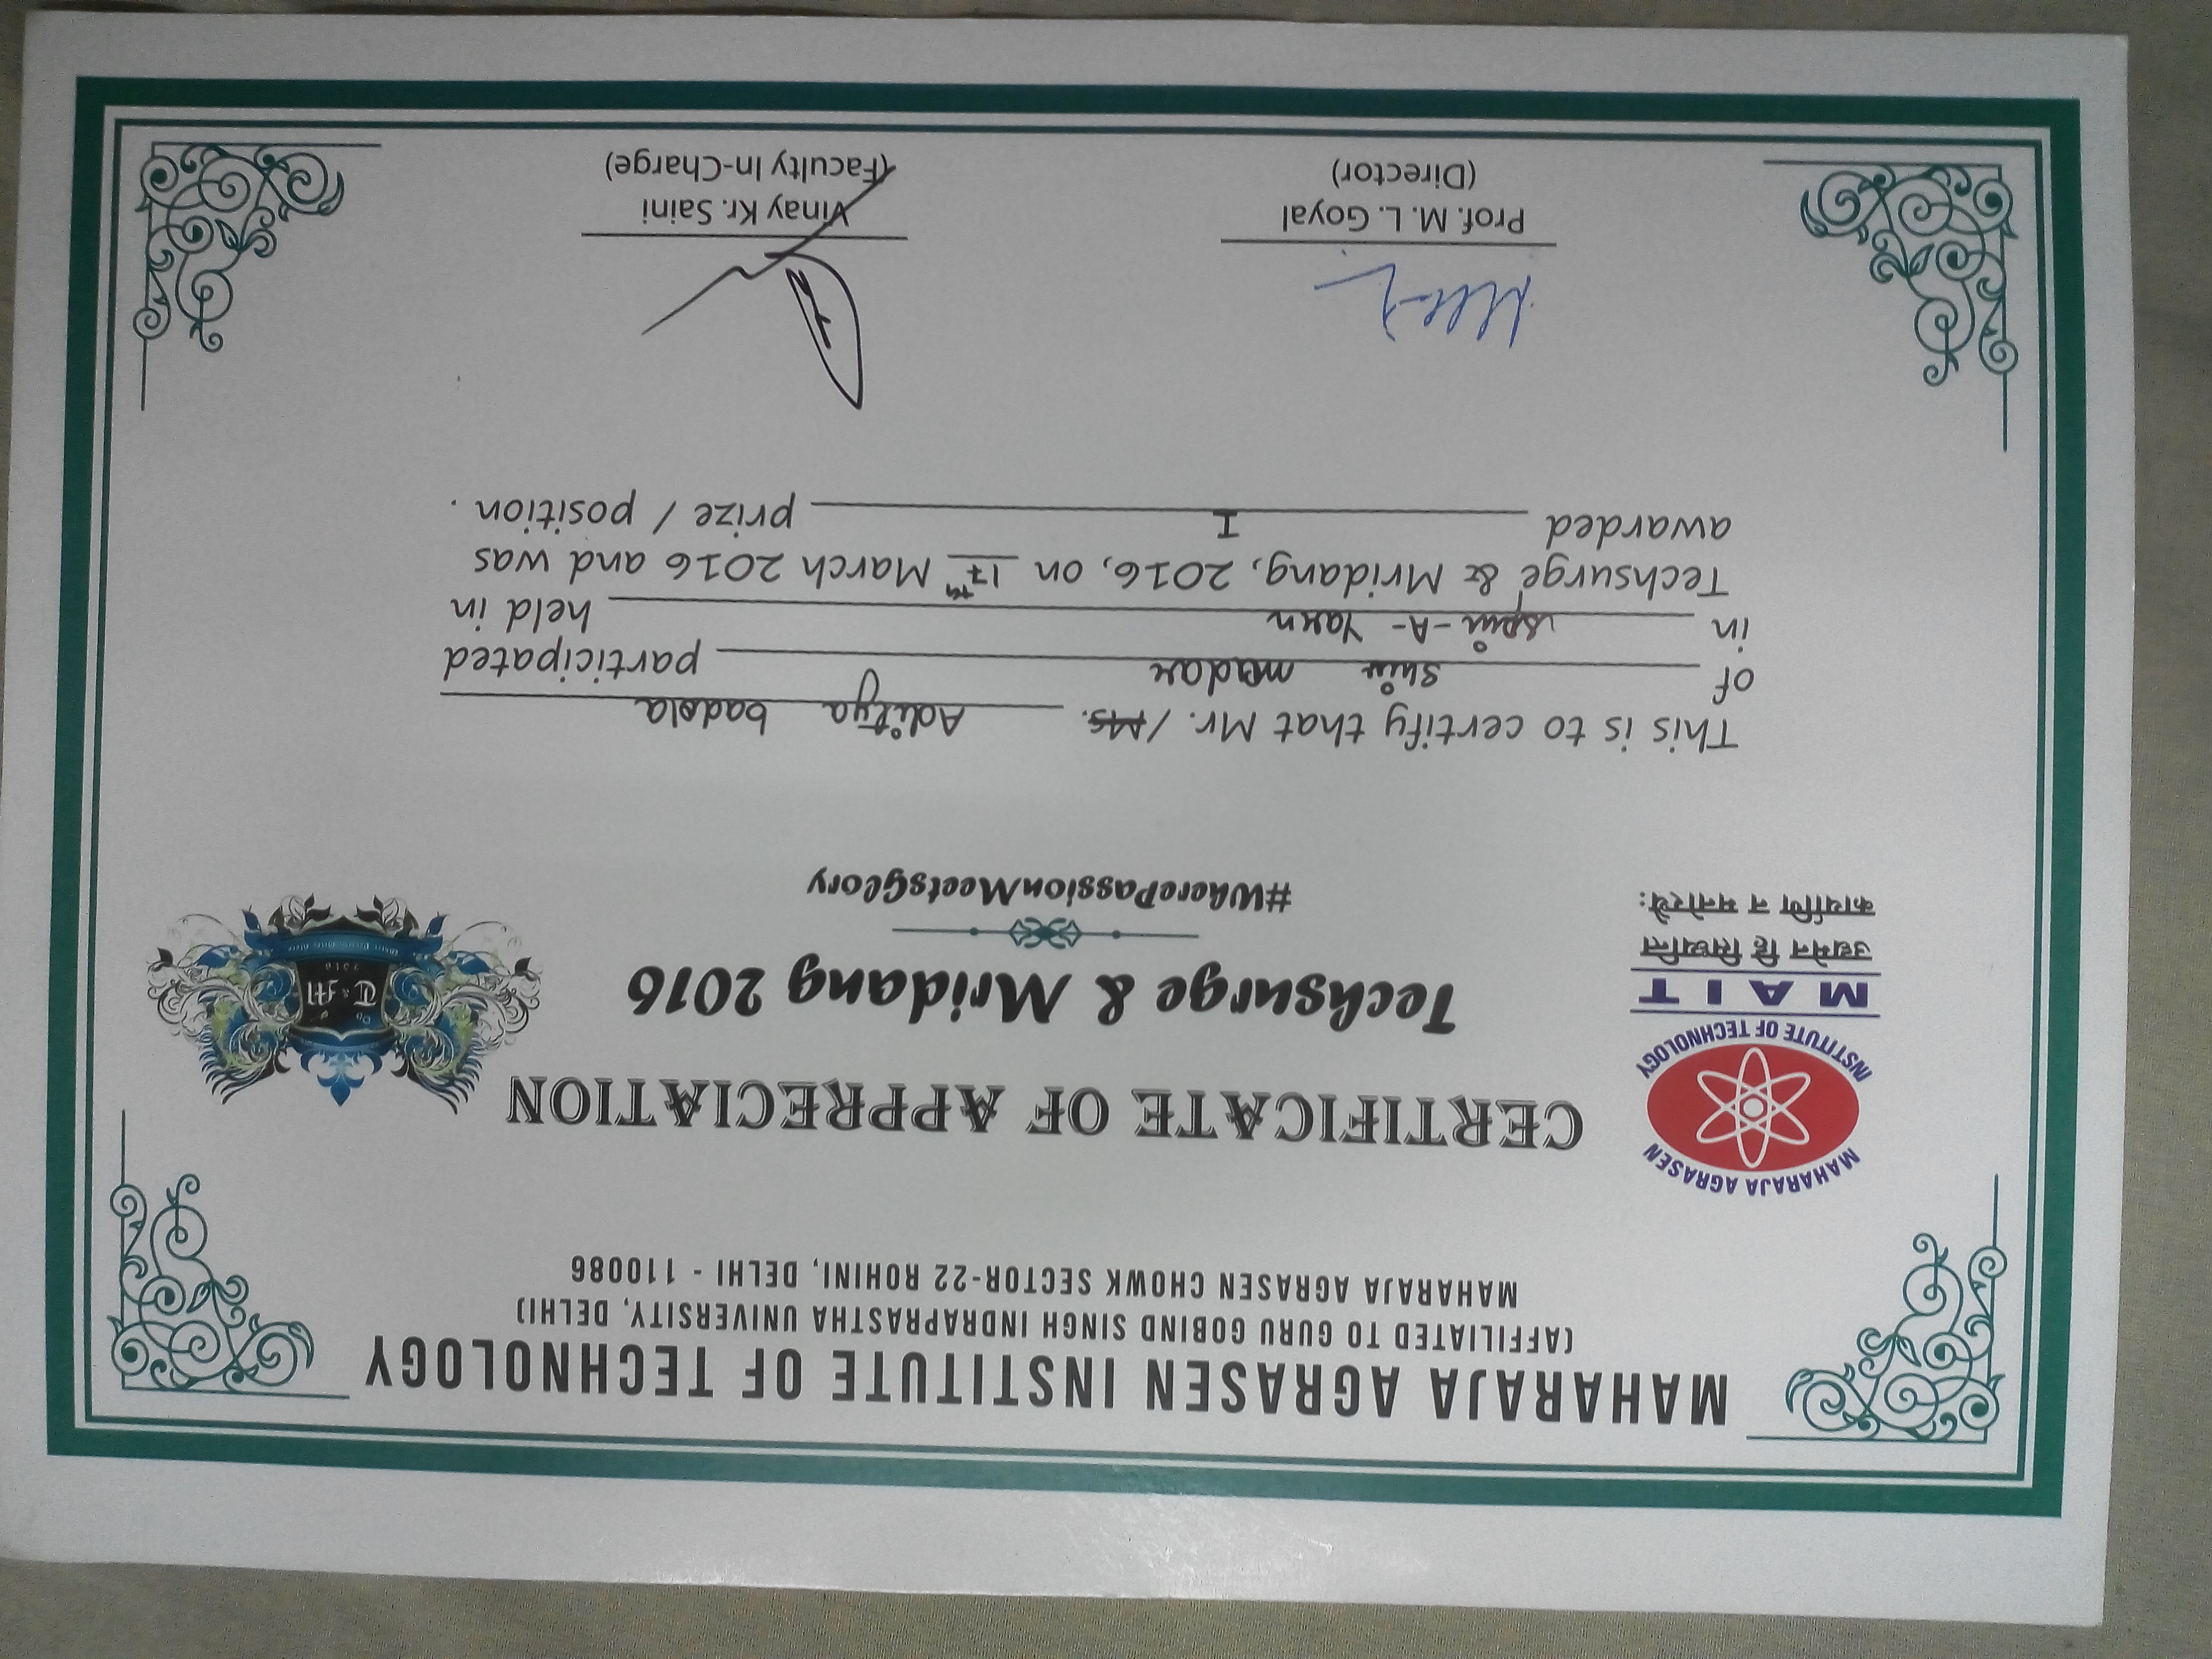 MAHARAJA AGRASEN INSTITUTE OF TECHNOLOGY
(AFFILIATED TO GURU GOBIND SINGH INDRAPRASTHA UNIVERSITY, DELHI)
MAHARAJA AGRASEN CHOWK SECTOR-22 ROHINI, DELHI - 110086
MAHARAJA AGRASEN
INSTITUTE OF TECHNOLOGY
MAIT
उद्यमेन हि सिध्यन्ति
कार्याणि न मनोरथैः
CERTIFICATE OF APPRECIATION
Techsurge & Mridang 2016
#WherePassionMeetsGlory
T & M
2016
This is to certify that Mr. /Ms. Aditya badola
of shiv participated
in spin-A- Yarn held in
Techsurge & Mridang, 2016, on 17th March 2016 and was
awarded I prize / position .
Prof. M. L. Goyal
(Director)
Vinay Kr. Saini
(Faculty In-Charge)